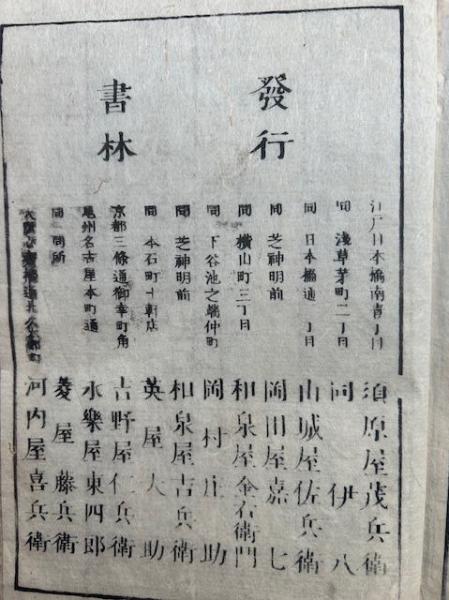 發行
書林
江戸日本橋南壹丁目 須原屋茂兵衛
同 淺草茅町二丁目 同 伊八
同 日本橋通 丁目 山城屋佐兵衛
同 芝神明前 岡田屋嘉七
同 横山町三丁目 和泉屋金右衛門
同 下谷池之端仲町 岡村庄助
同 芝神明前 和泉屋吉兵衛
同 本石町十軒店 英屋大助
京都三條通御幸町角 吉野屋仁兵衛
尾州名古屋本町通 永樂屋東四郎
同 同所 菱屋藤兵衛
大阪心齋橋通北久太郎町 河内屋喜兵衛